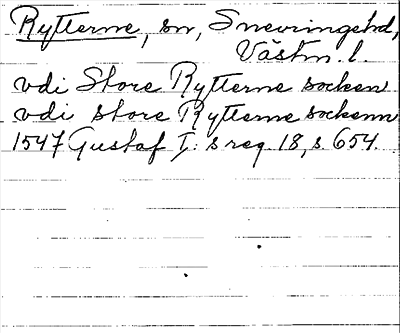 Rytterne, sn, Snevringehd,
Västm. l.
vdi Store Rytterne socken
vdi store Rytterne sockenn
1547 Gustaf I: s reg. 18, s. 654.